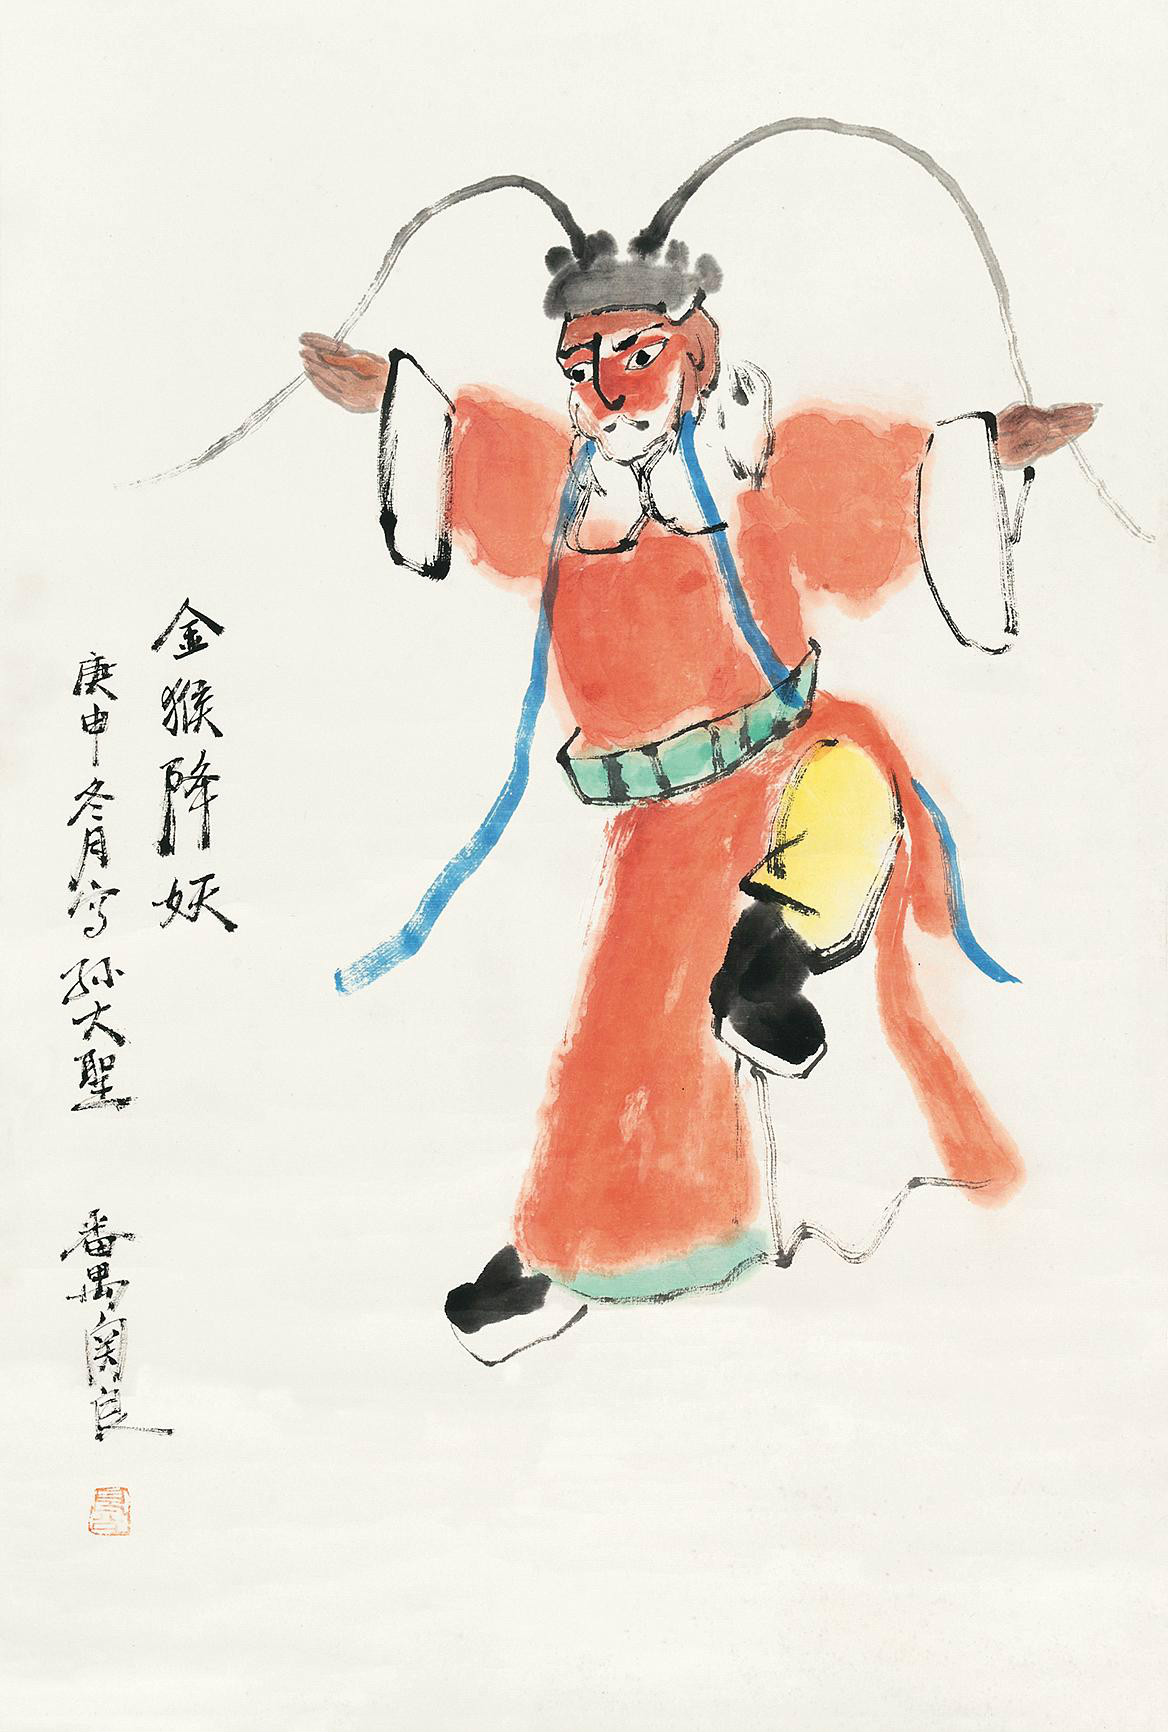 金猴降妖
庚申冬月写孙大聖
番禺関良